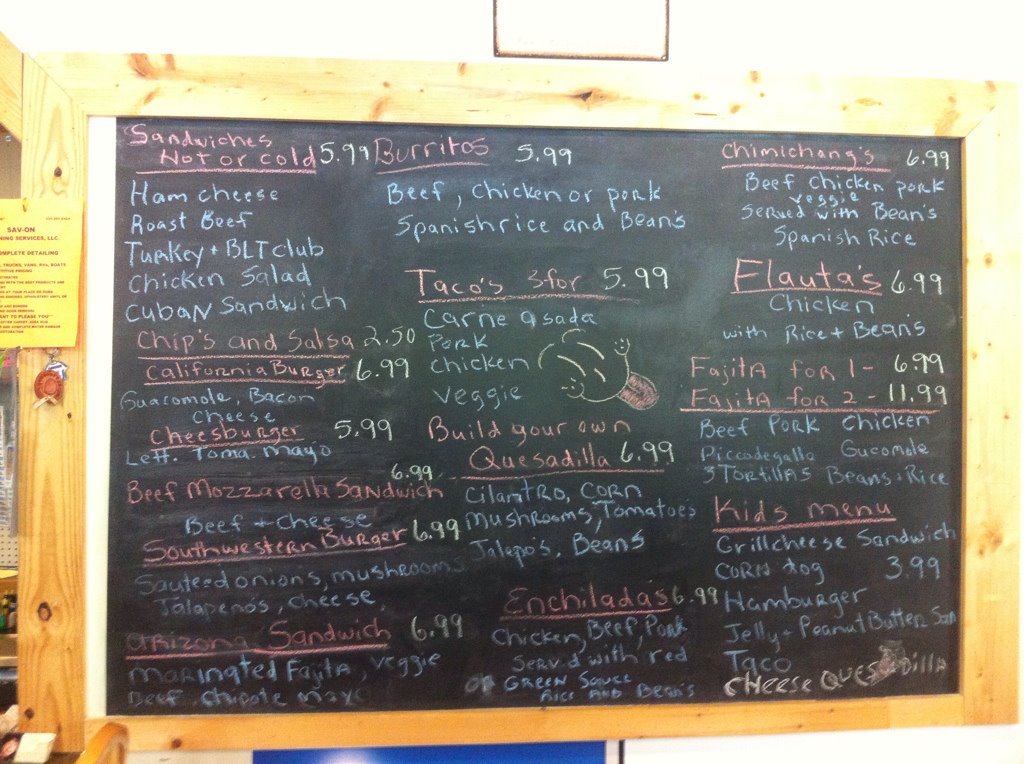 Sandwiches
Hot or cold 5.99
Ham cheese
Roast Beef
Turkey + BLT club
Chicken Salad
Cuban Sandwich
Chip's and Salsa 2.50
California Burger 6.99
Guacomole, Bacon
Cheese
Cheesburger 5.99
Lett. Toma. mayo
6.99
Beef Mozzarella Sandwich
Beef + cheese
Southwestern Burger 6.99
Sauteed onions, mushrooms
Jalapenos, cheese,
Arizona Sandwich 6.99
Marinated Fajita, veggie
Beef Chipotle mayo
Burritos 5.99
Beef, Chicken or pork
Spanish rice and Bean's
Taco's 3 for 5.99
Carne asada
Pork
Chicken
Veggie
Build your own
Quesadilla 6.99
Cilantro, Corn
Mushrooms, Tomatoes
Jalepo's, Beans
Enchilada's 6.99
Chicken, Beef, Pork
Served with red
or Green Sauce
Rice and Bean's
Chimichang's 6.99
Beef, chicken pork
veggie
Served with Bean's
Spanish Rice
Flauta's 6.99
Chicken
with Rice + Beans
Fajita for 1 - 6.99
Fajita for 2 - 11.99
Beef Pork Chicken
Piccodegallo Gucomole
3 Tortillas Beans + Rice
Kids menu
Grillcheese Sandwich
Corn dog 3.99
Hamburger
Jelly + Peanut Butter San
Taco
Cheese Quesadilla
SAV-ON
NING SERVICES, LLC.
OMPLETE DETAILING
TRUCKS, VANS, RVs, BOATS